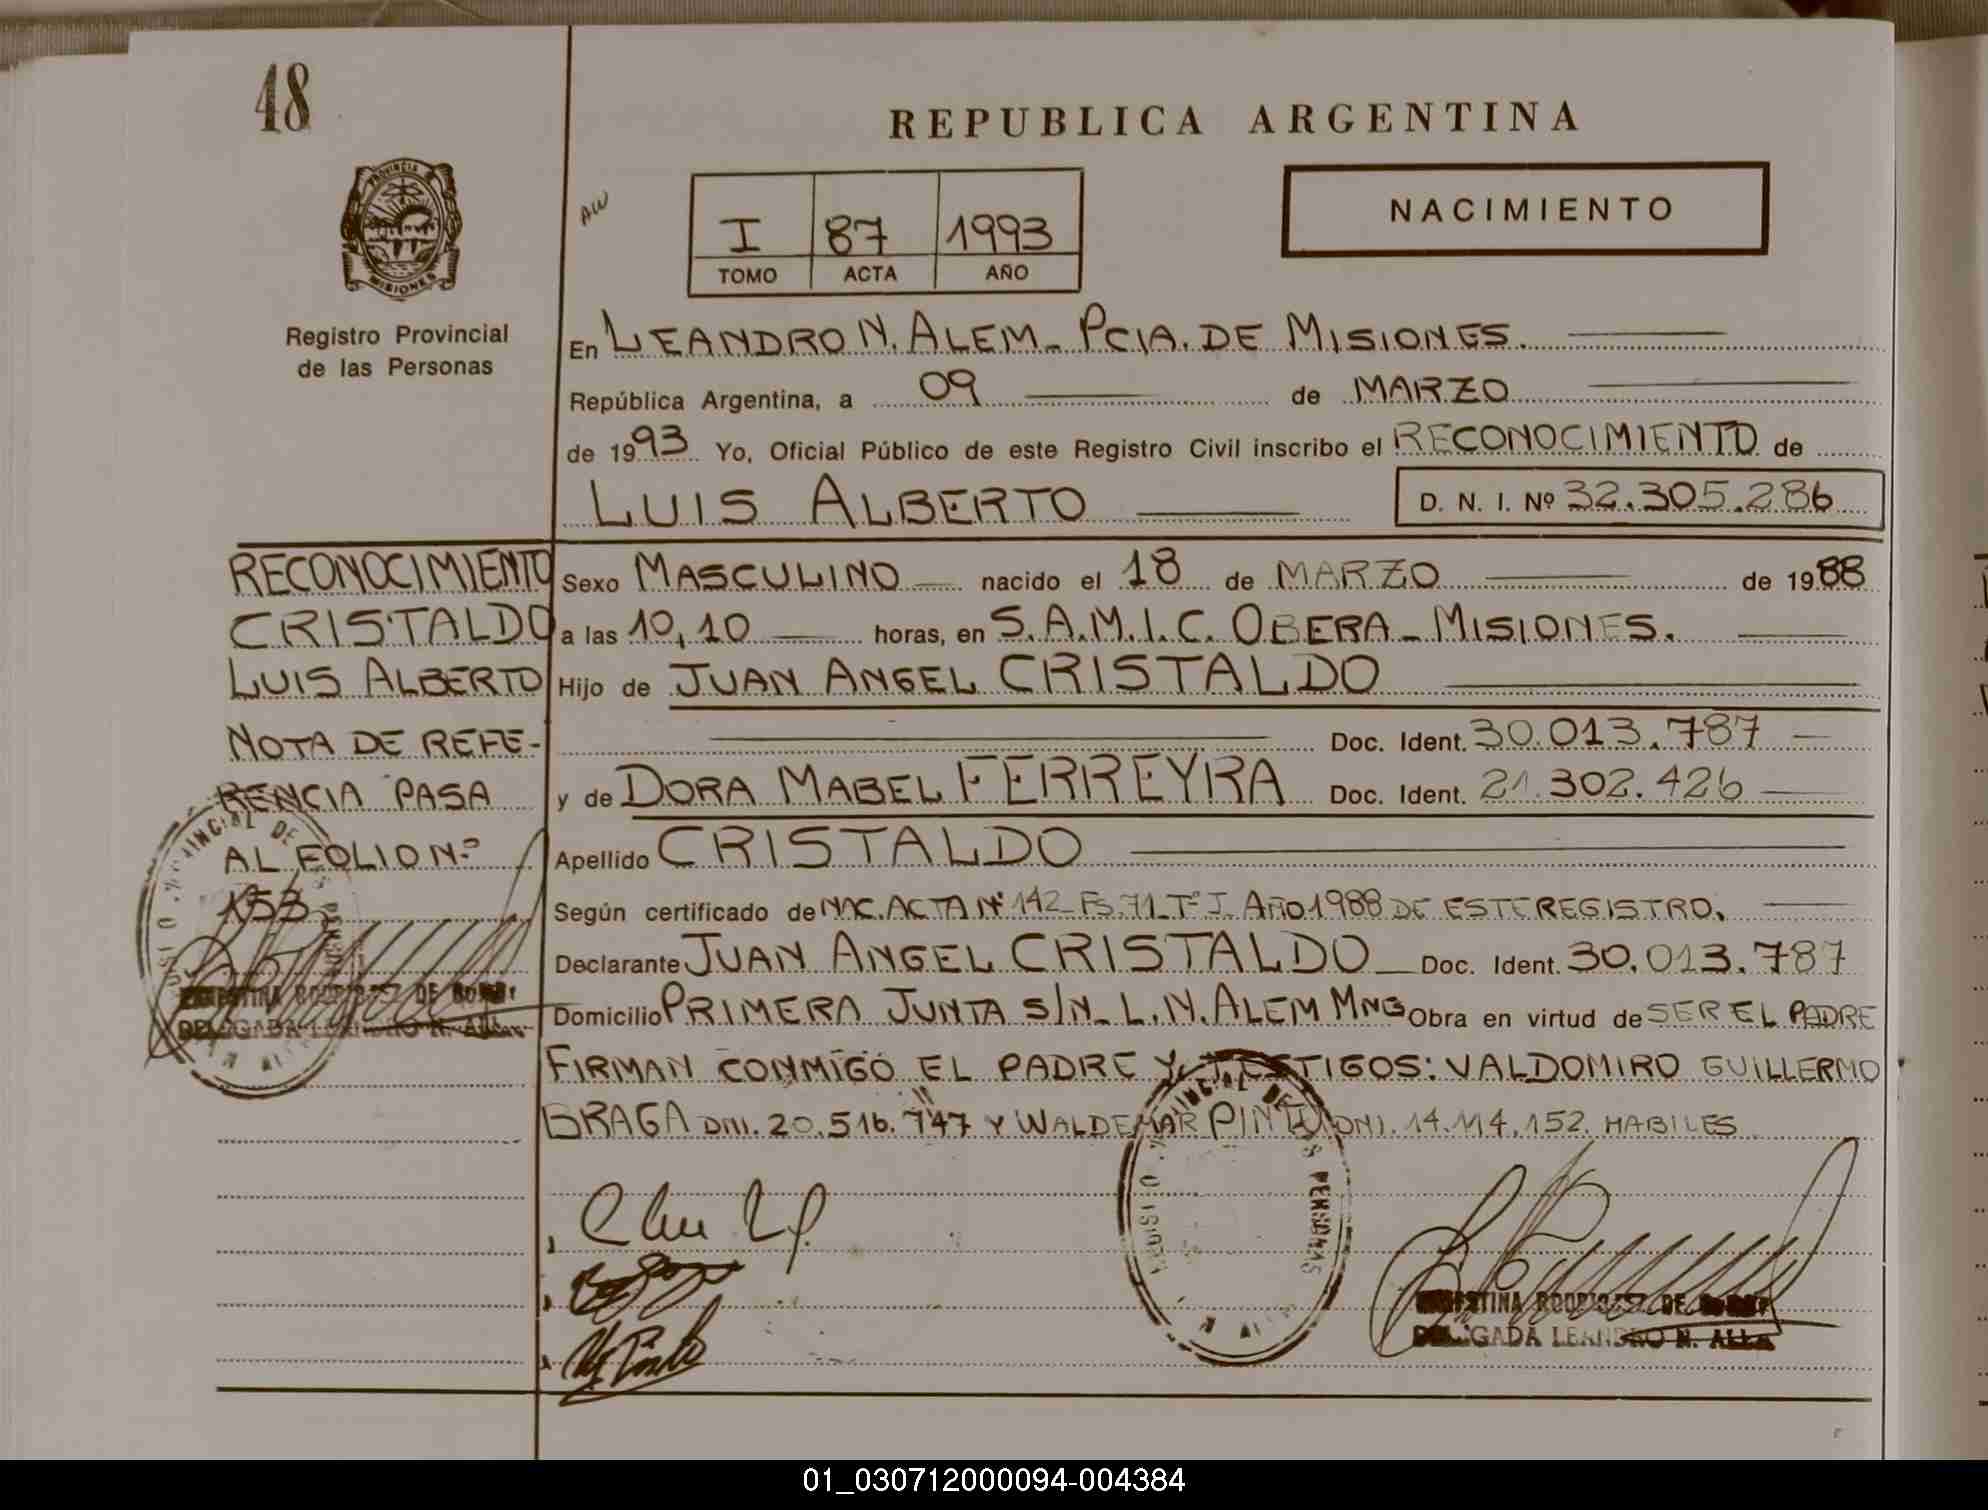 48
REPUBLICA ARGENTINA
PROVINCIA DE
MISIONES
AW
I 87 1993
TOMO ACTA AÑO
NACIMIENTO
Registro Provincial
de las Personas
En LEANDRO N. ALEM - PCIA. DE MISIONES.
República Argentina, a 09 de MARZO
de 1993 Yo, Oficial Público de este Registro Civil inscribo el RECONOCIMIENTO de
LUIS ALBERTO D. N. I. Nº 32.305.286
RECONOCIMIENTO
CRISTALDO
LUIS ALBERTO
NOTA DE REFE-
RENCIA PASA
AL FOLIO Nº
153
Sexo MASCULINO nacido el 18 de MARZO de 1988
a las 10,10 horas, en S.A.M.I.C. OBERA - MISIONES.
Hijo de JUAN ANGEL CRISTALDO
Doc. Ident. 30.013.787
y de DORA MABEL FERREYRA Doc. Ident. 21.302.426
Apellido CRISTALDO
Según certificado de NAC. ACTA Nº 142 - Fs. 71 - Tº I. AÑO 1988 DE ESTE REGISTRO.
Declarante JUAN ANGEL CRISTALDO Doc. Ident. 30.013.787
Domicilio PRIMERA JUNTA S/N - L.N. ALEM MNES Obra en virtud de SER EL PADRE
FIRMAN CONMIGO EL PADRE Y TESTIGOS: VALDOMIRO GUILLERMO
BRAGA DNI. 20.516.747 Y WALDEMAR PINTO DNI. 14.114.152. HABILES
RODRIGUEZ DE
DELEGADA LEANDRO N. ALEM
RODRIGUEZ DE
DELEGADA LEANDRO N. ALEM
01_030712000094-004384